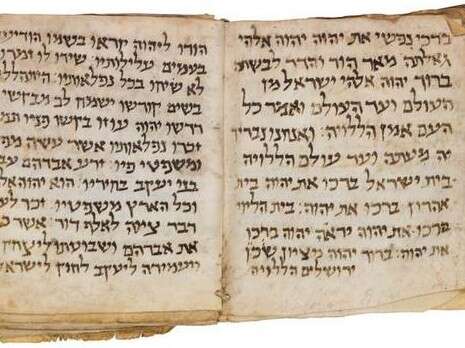 ברכי נפשי את יהוה יהוה אלהי
גדלתה מאד הוד והדר לבשת
ברוך יהוה אלהי ישראל מן
העולם ועד העולם ואמר כל
העם אמן הללויה: ואנחנו נברך
יה מעתה ועד עולם הללויה
בית ישראל ברכו את יהוה בית
אהרון ברכו את יהוה: בית הלוי
ברכו את יהוה יראה יהוה ברכו
את יהוה: ברוך יהוה מציון שכן
ירושלים הללויה
הודו ליהוה קראו בשמו הודיעו
בעמים עלילותיו, שירו לו זמרו
לו שיחו בכל נפלאותיו: התהללו
בשם קודשו ישמח לב מבקשי
דרשו יהוה עוזו בקשו פניו
זכרו נפלאותיו אשר עשה
ומשפטי פיו: זרע אברהם
בני יעקב בחיריו: הוא יהוה
וכל הארץ משפטיו: זכר
דבר ציוה לאלף דור: אשר
את אברהם ושבועתו ליצחק
ויעמידה ליעקב לחוק לישראל